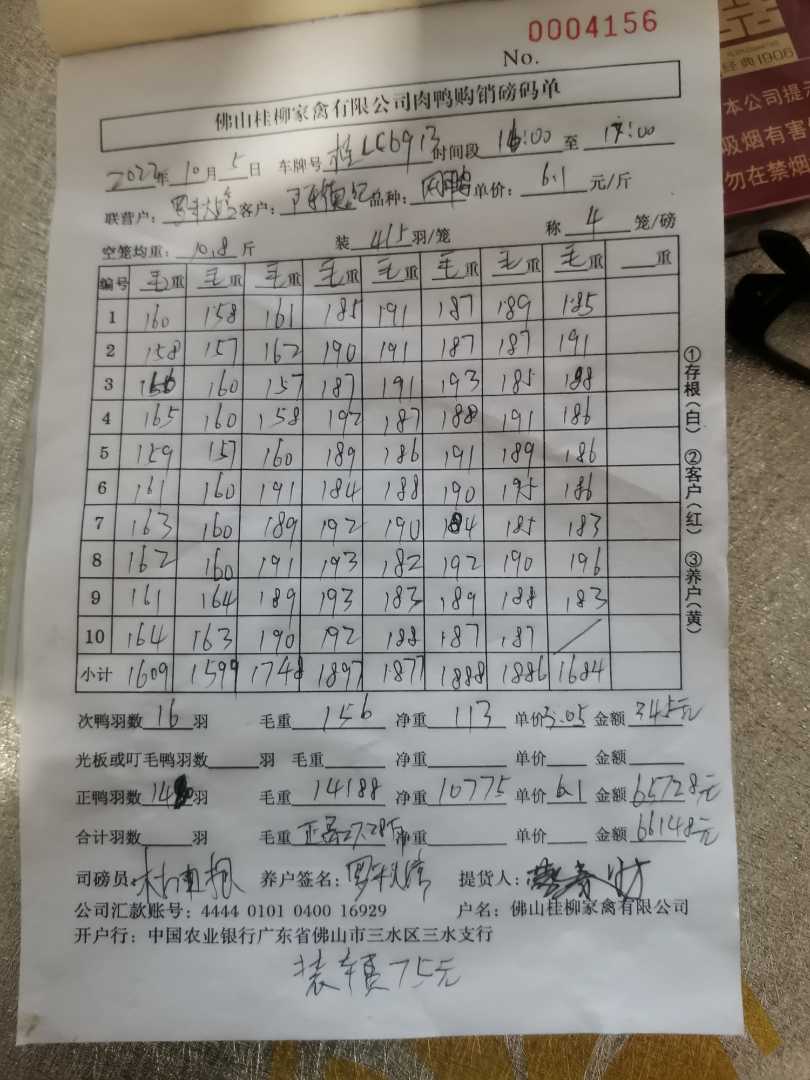 0004156
No.
经典1906
本公司提示
吸烟有害健
勿在禁烟
佛山桂柳家禽有限公司肉鸭购销磅码单
2022年10月5日 车牌号 桂LC6913 时间段 16:00 至 17:00
联营户: 客户: 品种: 单价: 6.1 元/斤
空笼均重: 10.8 斤 装 4/5 羽/笼 称 4 笼/磅
编号 毛重 毛重 毛重 毛重 毛重 毛重 毛重 毛重 重
1 160 158 161 185 191 187 189 185
2 158 157 162 190 191 187 187 191
3 156 160 157 187 191 193 185 188
4 165 160 158 192 187 188 191 186
5 159 157 160 189 186 191 189 186
6 161 160 191 184 188 190 195 186
7 163 160 189 192 190 184 185 183
8 162 160 191 193 182 192 190 196
9 161 164 189 193 183 189 188 183
10 164 163 190 192 188 187 187 /
小计 1609 1599 1748 1897 1877 1888 1886 1684
①存根(白) ②客户(红) ③养户(黄)
次鸭羽数 16 羽 毛重 156 净重 113 单价 3.05 金额 345元
光板或叮毛鸭羽数 羽 毛重 净重 单价 金额
正鸭羽数 羽 毛重 14188 净重 10775 单价 6.1 金额 65728元
合计羽数 羽 毛重 净重 单价 金额 66148元
司磅员: 养户签名: 提货人:
公司汇款账号: 4444 0101 0400 16929 户名: 佛山桂柳家禽有限公司
开户行: 中国农业银行广东省佛山市三水区三水支行
装车费75元